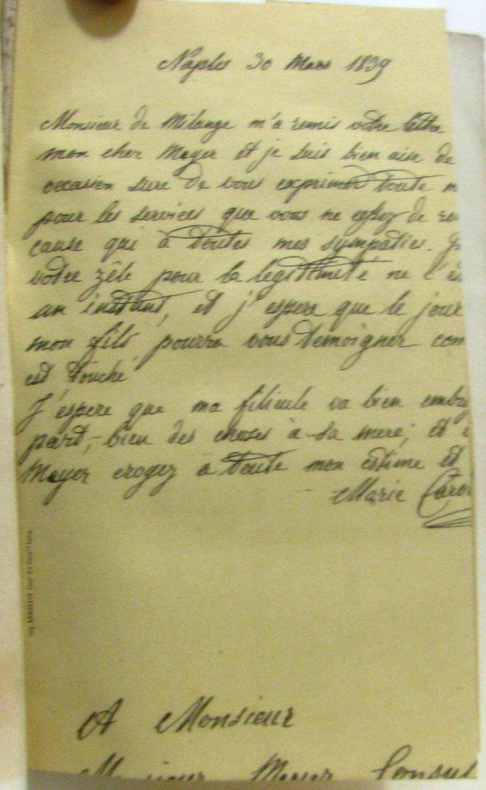 Naples 30 Mars 1839
Monsieur de Mélange m'a remis votre lettre
mon cher Mayer et je suis bien aise de
occasion sure de vous exprimer toute m
pour les services que vous ne cessez de ren
cause qui à toutes mes sympaties.
votre zèle pour la légitimité ne l'és
un instant, et j'espere que le jour
mon fils pourra vous temoigner com
est touché
J'espere que ma filieule va bien embra
part, bien des choses à sa mere; et
Mayer croyez à toute mon estime et
Marie Caro
A Monsieur
Monsieur Mayer Consul